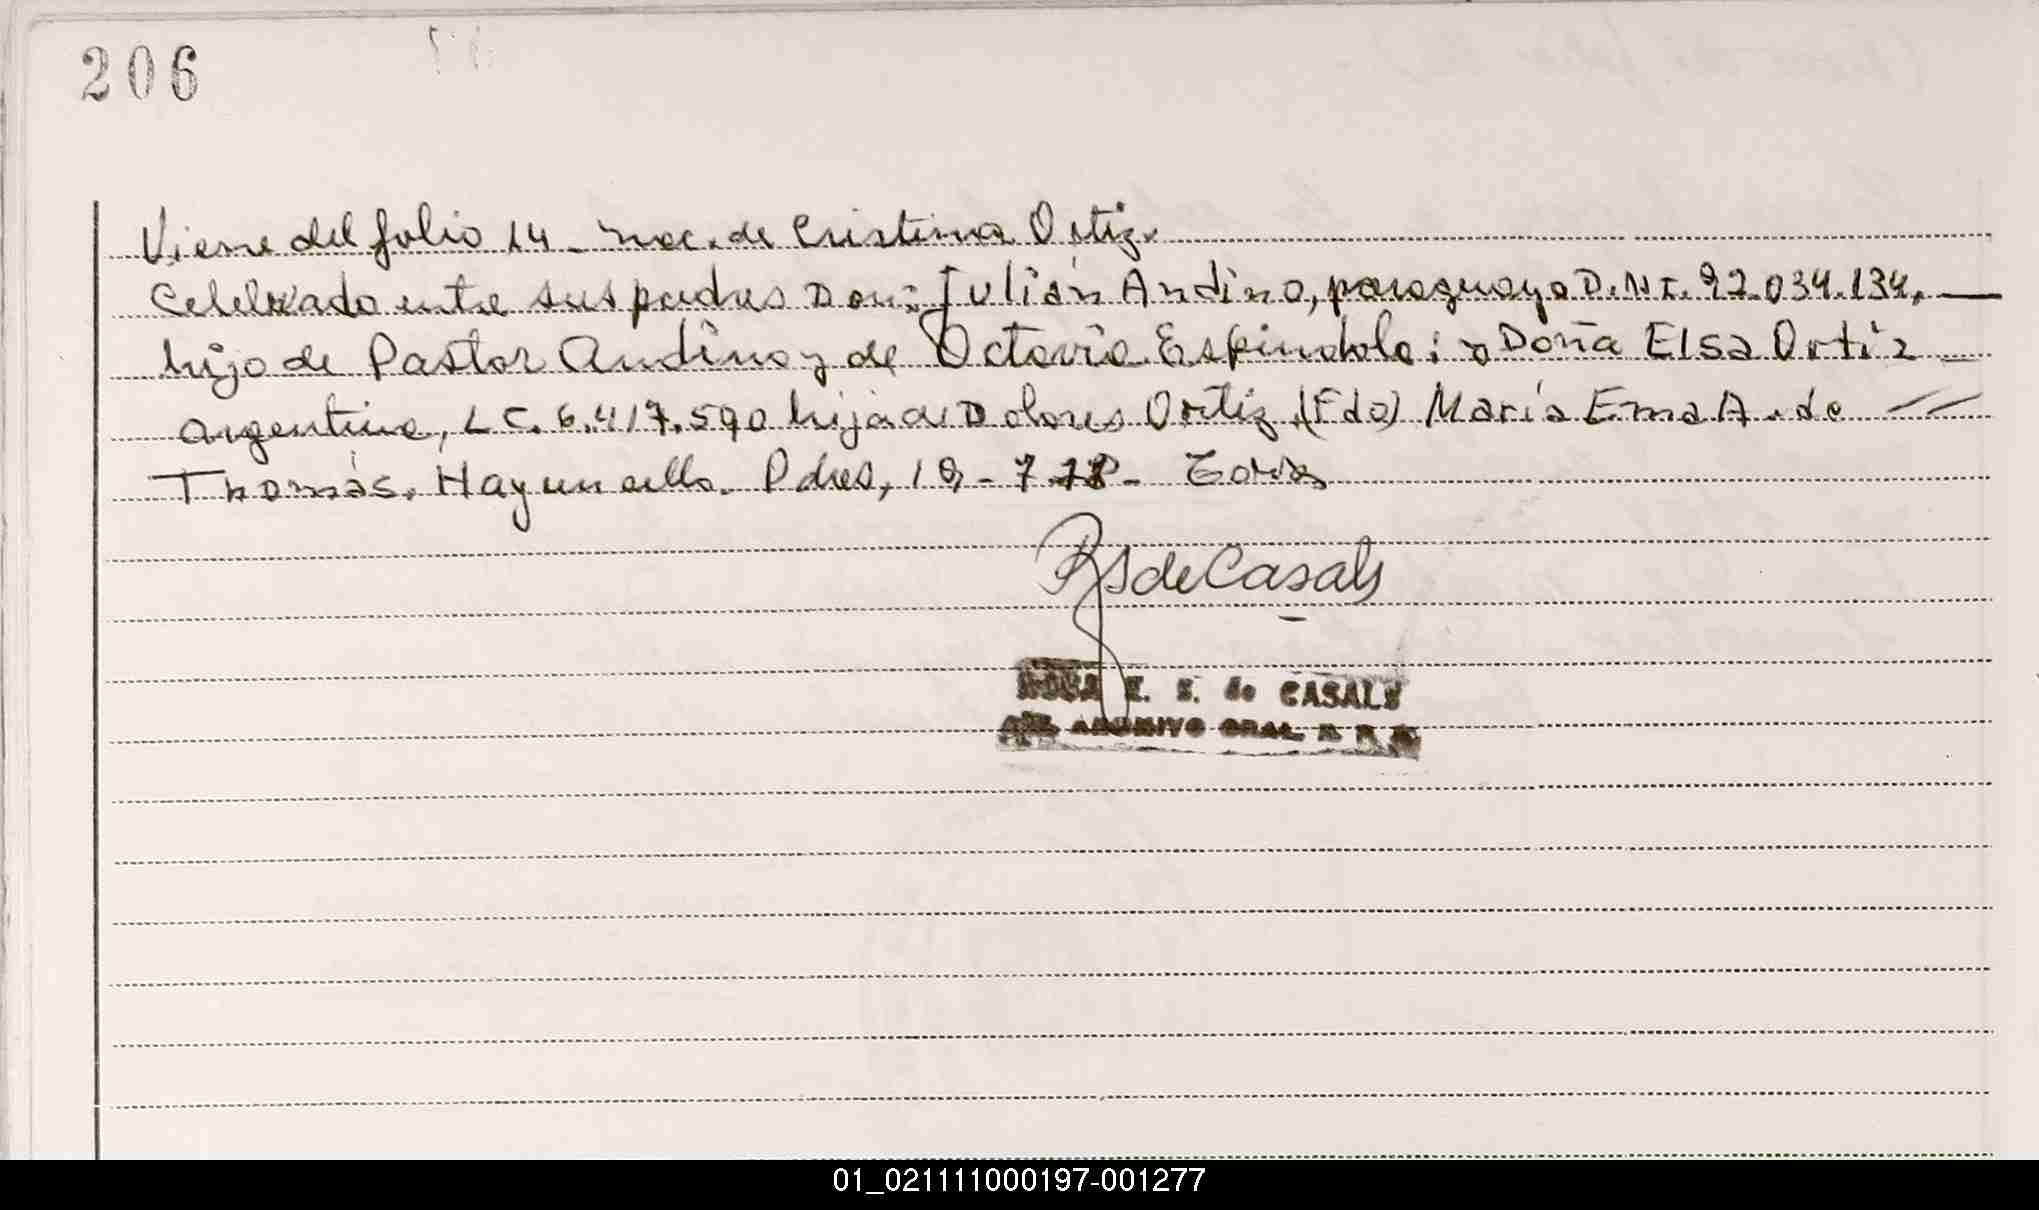 206
Viene del folio 14 - nac. de Cristina Ortiz.
Celebrado entre sus padres Don: Julián Andino, paraguayo D.N.I. 92.034.134,
hijo de Pastor Andino y de Octavia Espindola; y Doña Elsa Ortiz
argentina, L C. 6.417.590 hija de Dolores Ortiz (Fdo) María Ema A. de
Thomás. Hay un sello. Pdas, 19-7-78-
RS de Casals
ROSA E. S. de CASALS
ARCHIVO GRAL.
01_021111000197-001277